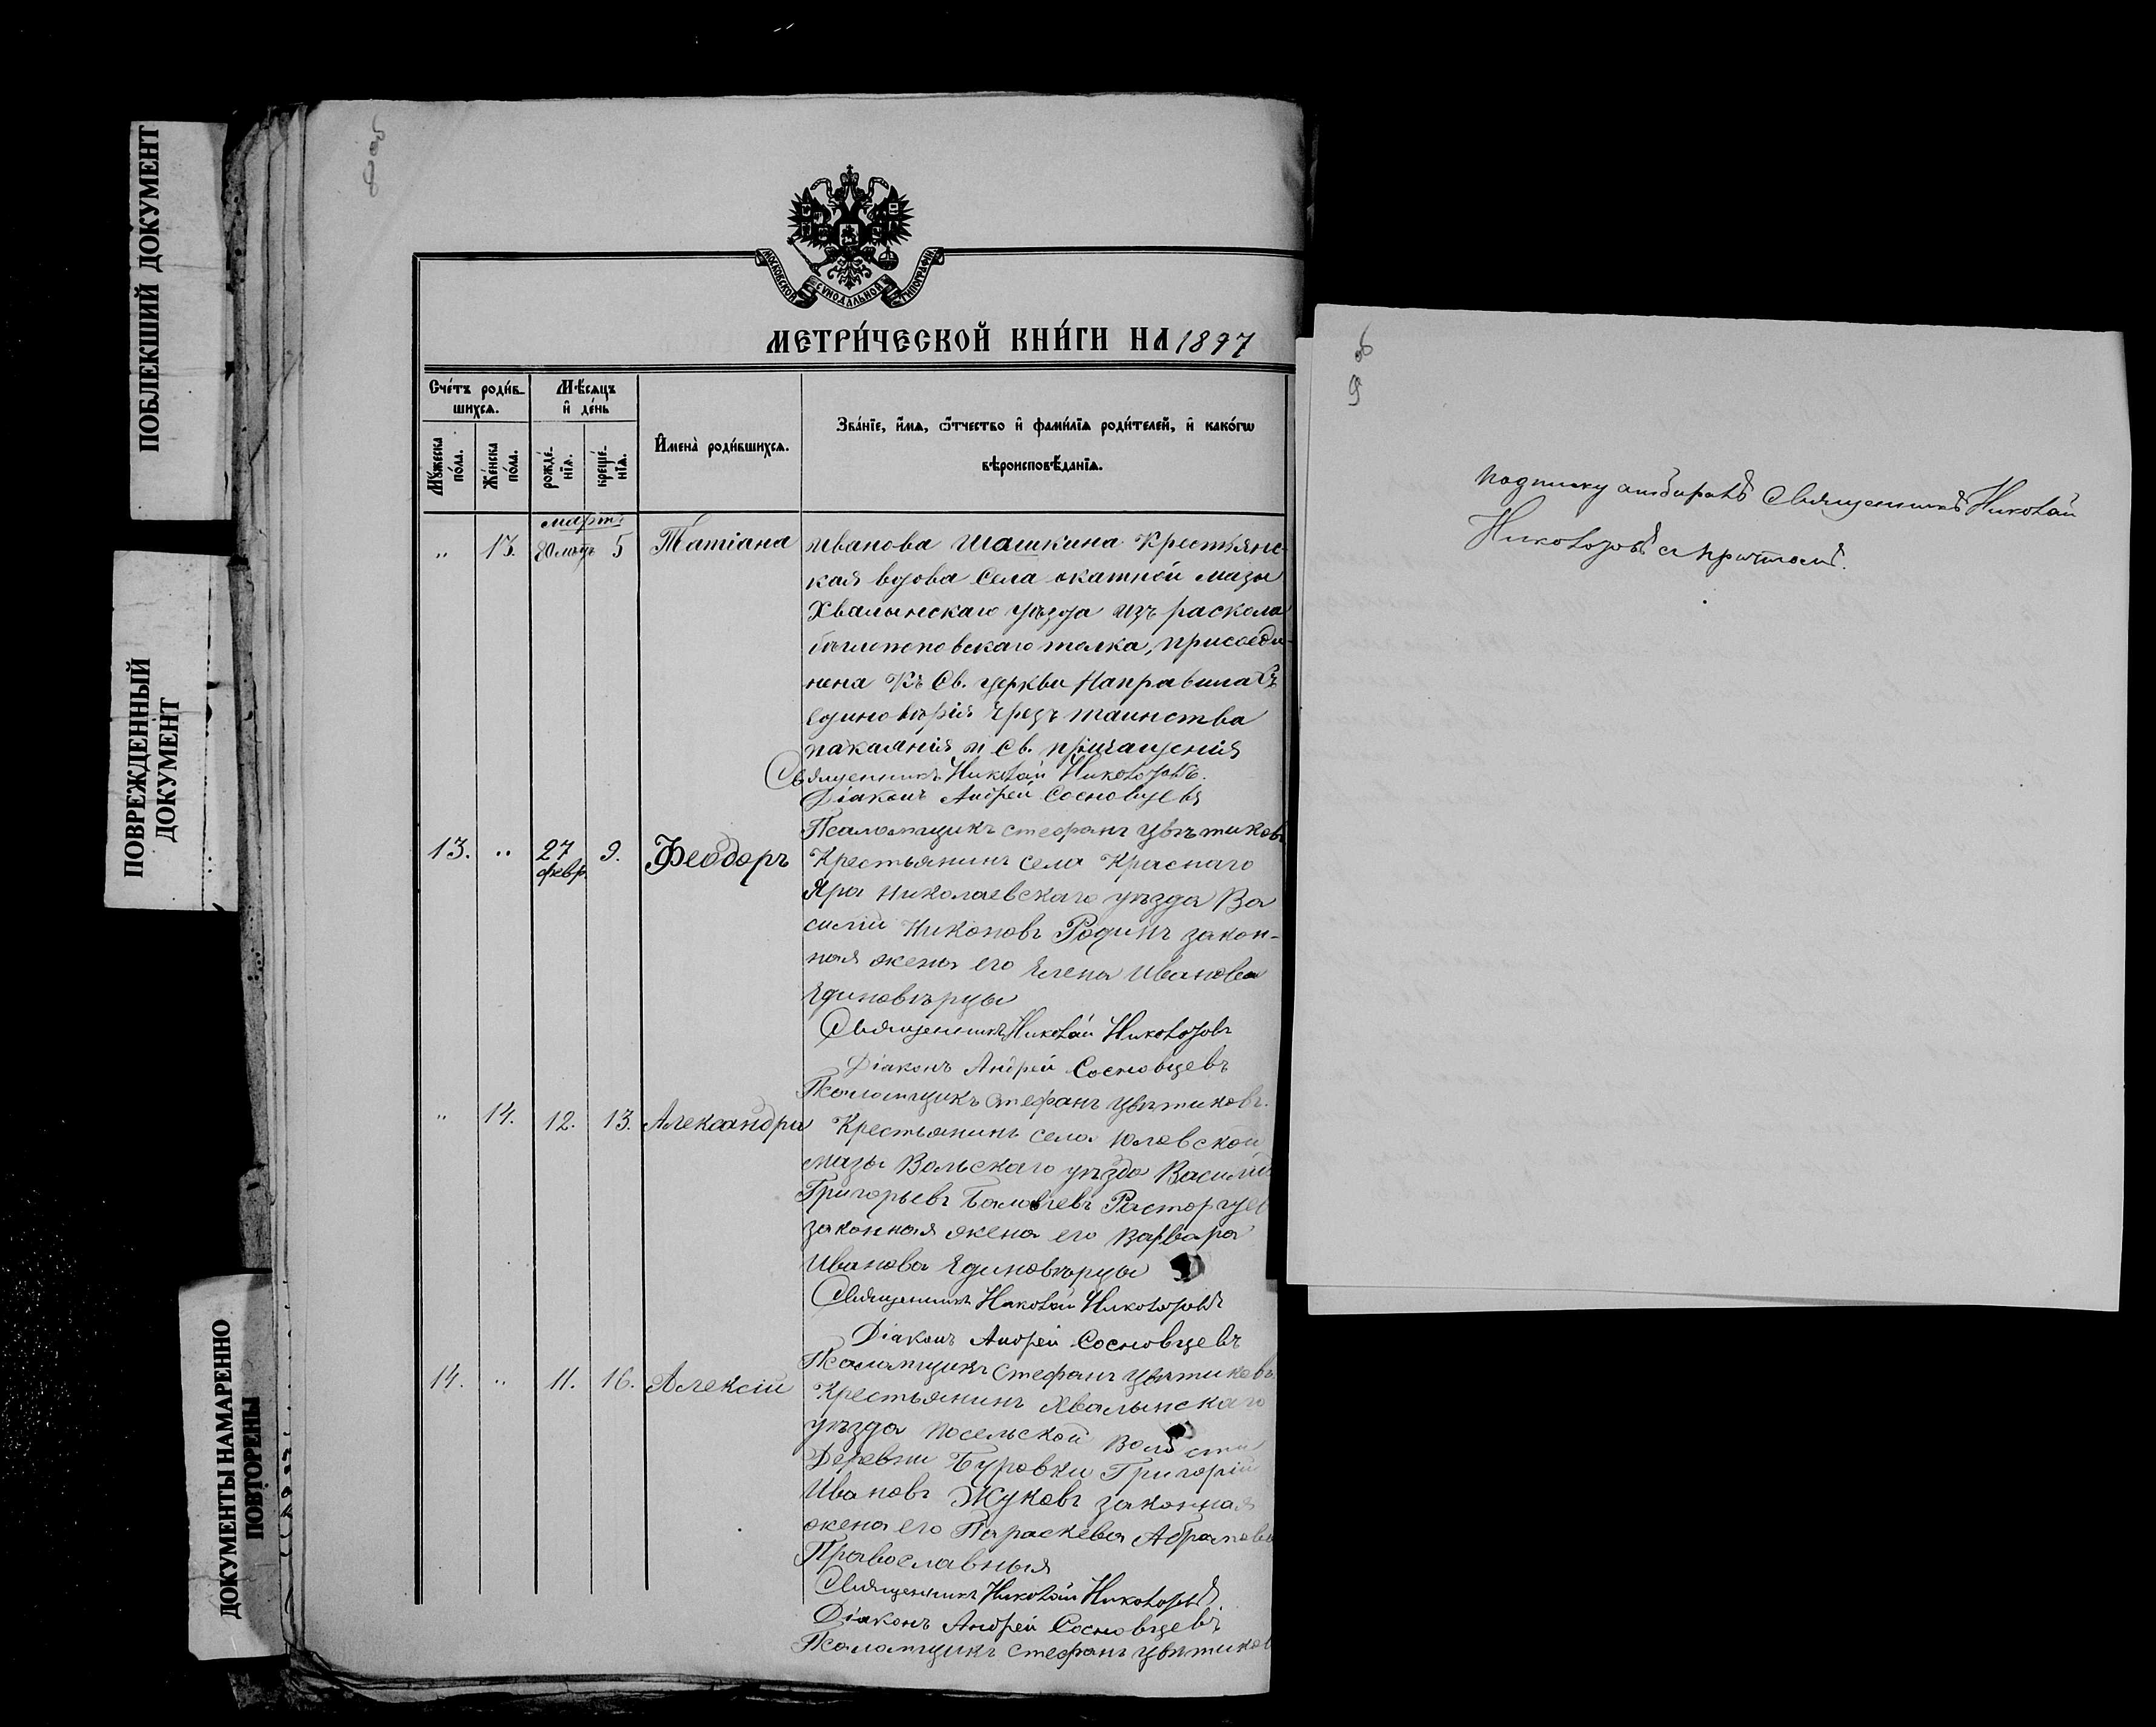 ПОБЛЕКШИЙ ДОКУМЕНТ
ПОВРЕЖДЕННЫЙ
ДОКУМЕНТ
ДОКУМЕНТЫ НАМАРЕННО
ПОВТОРЕНЫ
8 об
МОСКОВСКОЙ СѴНОДАЛЬНОЙ ТИПОГРАФІИ
МЕТРИ́ЧЕСКОЙ КНИ́ГИ НА 1897
Счéтъ роди́в-
шихся.
Мѣ́сяцъ
и҆ де́нь
Мꙋ́жеска
по́ла.
Же́нска
по́ла.
рожде́-
нїя.
креще́-
нїя.
И҆мена̀ роди́вшихся.
Зва́нїе, и҆́мя, ѻ҆́тчество и҆ фами́лїя роди́телей, и҆ како́гѡ
вѣроисповѣ́данїя.
мартъ
" 13. 80 лѣтъ 5 Татіана Иванова Шашкина Крестьянс-
кая вдова Села окатной мазы
Хвалынскаго уѣзда изъ раскола
бѣглопоповскаго толка, присоеди-
нена Къ Св. церкви На правилахъ
единовѣрія чрезъ таинства
покаянія и Св. причащенія
Священникъ Николай Николозовъ.
Діаконъ Андрей Сосновцевъ
Псаломщикъ Стефанъ Цвѣтиковъ
13. " 27 9. Феодоръ Крестьянинъ села Краснаго
февр.
Яра Николаевскаго уѣзда Ва
силій Никоновъ Родинъ закон-
ная жена его Елена Иванова
Единовѣрцы
Священникъ Николай Николозовъ
Діаконъ Андрей Сосновцевъ
Псаломщикъ Стефанъ Цвѣтиковъ.
" 14. 12. 13. Александра Крестьянинъ села Юловской
мазы Вольскаго уѣзда Василій
Григорьевъ Расторгуев
законная жена его Варвара
Иванова Единовѣрцы
Священникъ Николай Николозовъ
Діаконъ Андрей Сосновцевъ
Псаломщикъ Стефанъ Цвѣтиковъ.
14. " 11. 16. Алексій Крестьянинъ Хвалынскаго
уѣзда Посельской Волости
Деревни Буровки Григорій
Ивановъ Жуковъ законная
жена его Параскева Абрамова
Православныя
Священникъ Николай Николозовъ.
Діаконъ Андрей Сосновцевъ.
Псаломщикъ Стефанъ Цвѣтиков
9 об
подписку отбиралъ Священникъ Николай
Николозовъ с причтомъ.